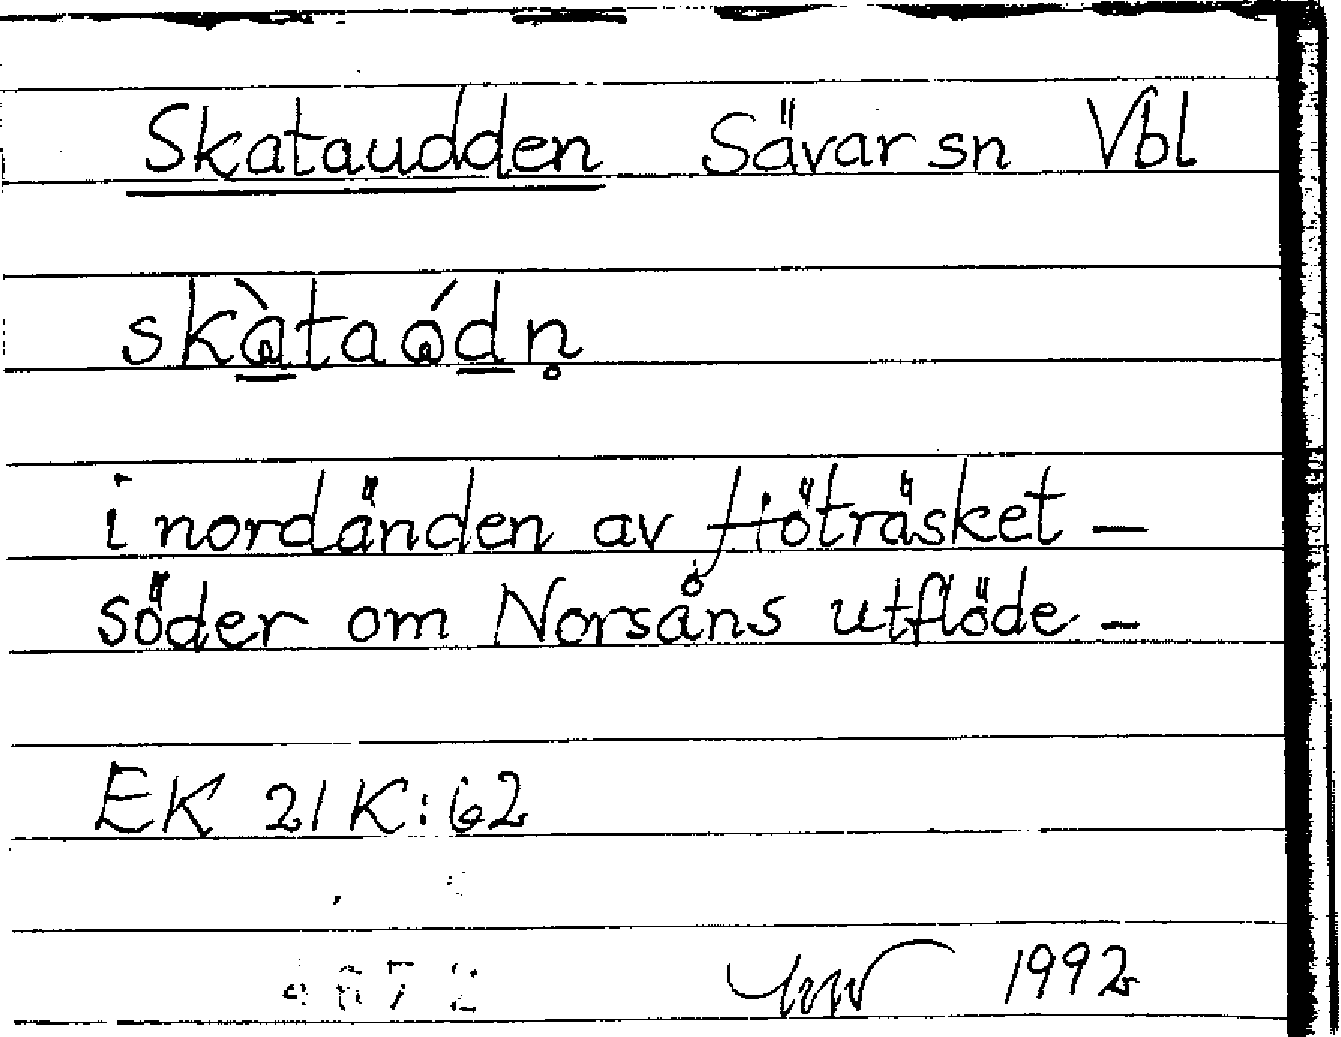 Skataudden Sävar sn Vbl
skàtaådn̥
i nordänden av Höträsket –
söder om Norsåns utflöde –
EK 21 K:62
1992